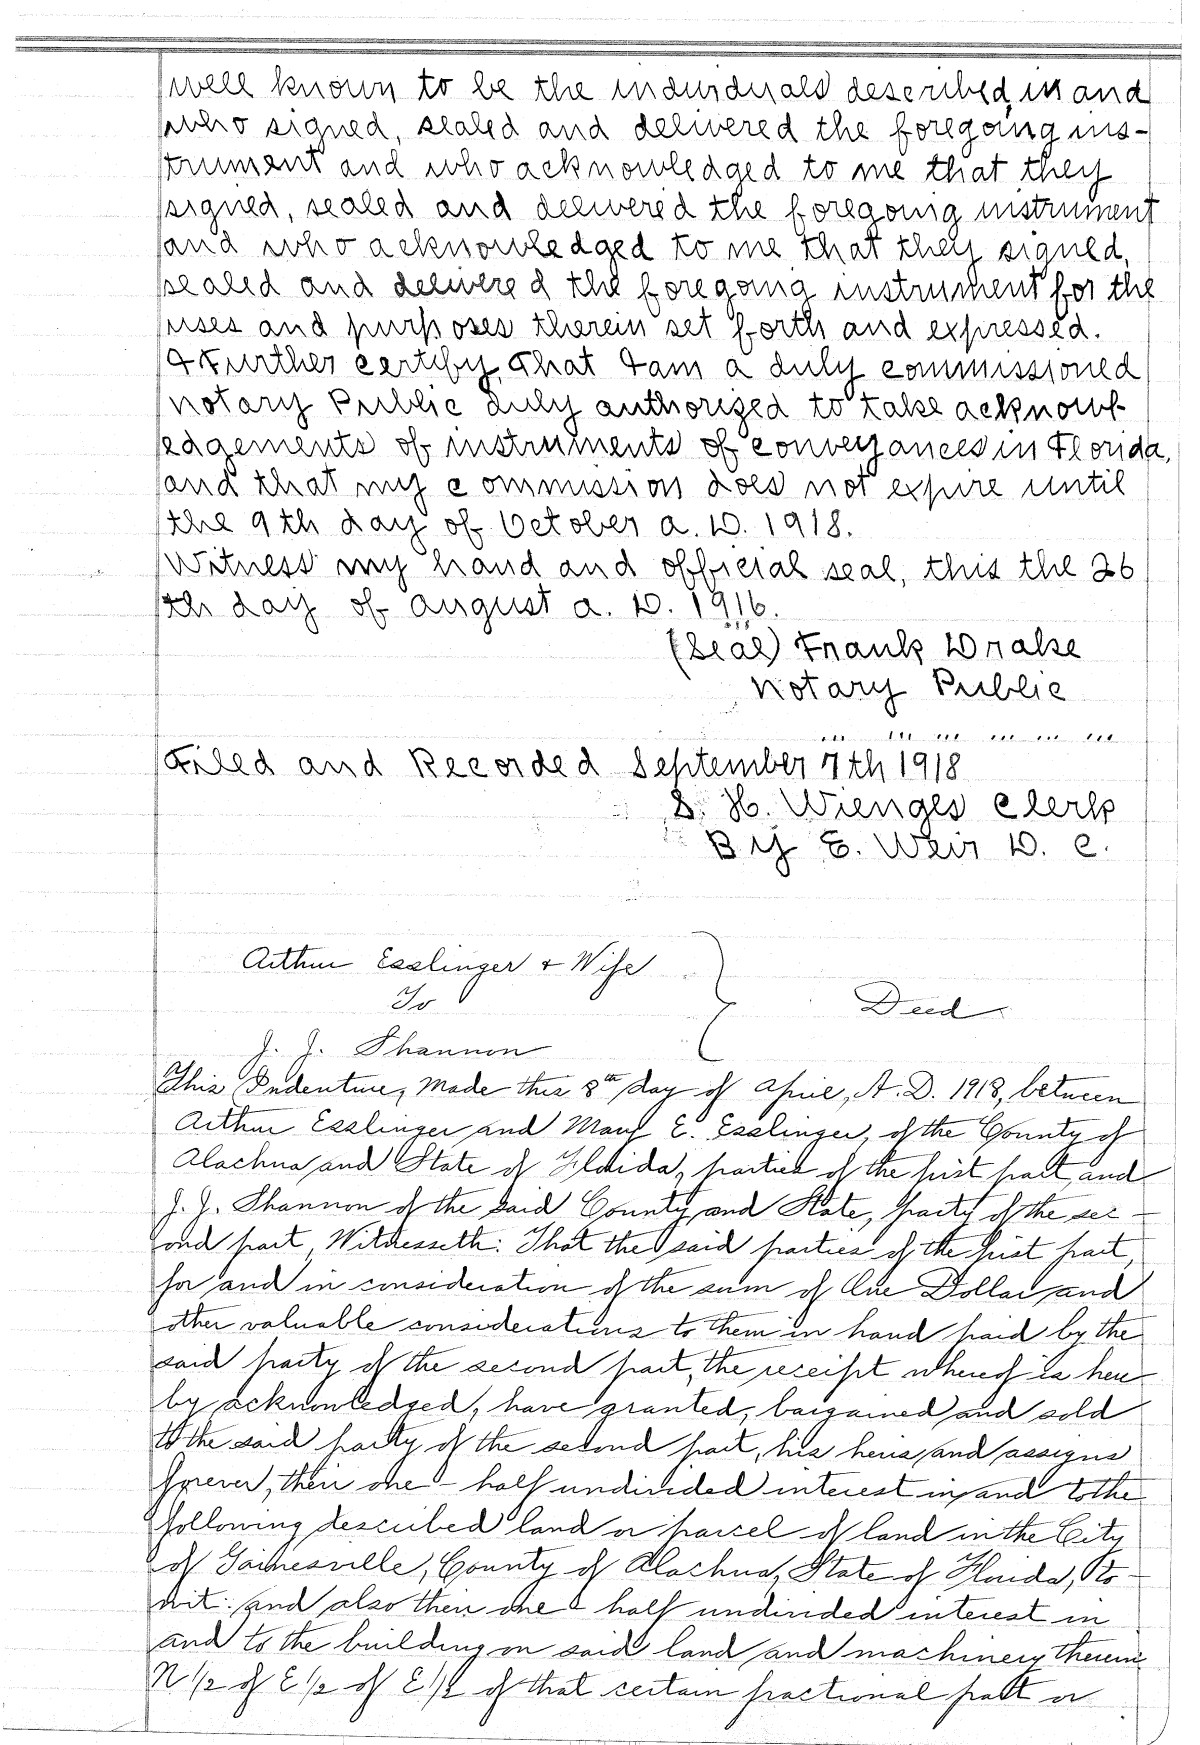 well known to be the individuals described in and
who signed, sealed and delivered the foregoing ins-
trument and who acknowledged to me that they
signed, sealed and delivered the foregoing instrument
and who acknowledged to me that they signed,
sealed and delivered the foregoing instrument for the
uses and purposes therein set forth and expressed.
I Further certify, That I am a duly commissioned
Notary Public duly authorized to take acknowl-
edgements of instruments of conveyances in Florida,
and that my commission does not expire until
the 9th day of October A. D. 1918.
Witness my hand and official seal, this the 26
th day of August A. D. 1916.
(Seal) Frank Drake
Notary Public
Filed and Recorded September 7th 1918
S. H. Wienges Clerk
By E. Weir D. C.
Arthur Esslinger + Wife
To
Deed
J. J. Shannon
This Indenture, Made this 8th day of April, A. D. 1918, between
Arthur Esslinger and Mary E. Esslinger, of the County of
Alachua and State of Florida, parties of the first part, and
J. J. Shannon of the said County and State, party of the sec-
ond part, Witnesseth: That the said parties of the first part,
for and in consideration of the sum of One Dollar and
other valuable considerations to them in hand paid by the
said party of the second part, the receipt whereof is here
by acknowledged, have granted, bargained and sold
to the said party of the second part, his heirs and assigns
forever, their one-half undivided interest in and to the
following described land or parcel of land in the City
of Gainesville, County of Alachua, State of Florida, to-
wit: and also their one-half undivided interest in
and to the building on said land and machinery therein
N 1/2 of E 1/2 of E 1/2 of that certain fractional part or